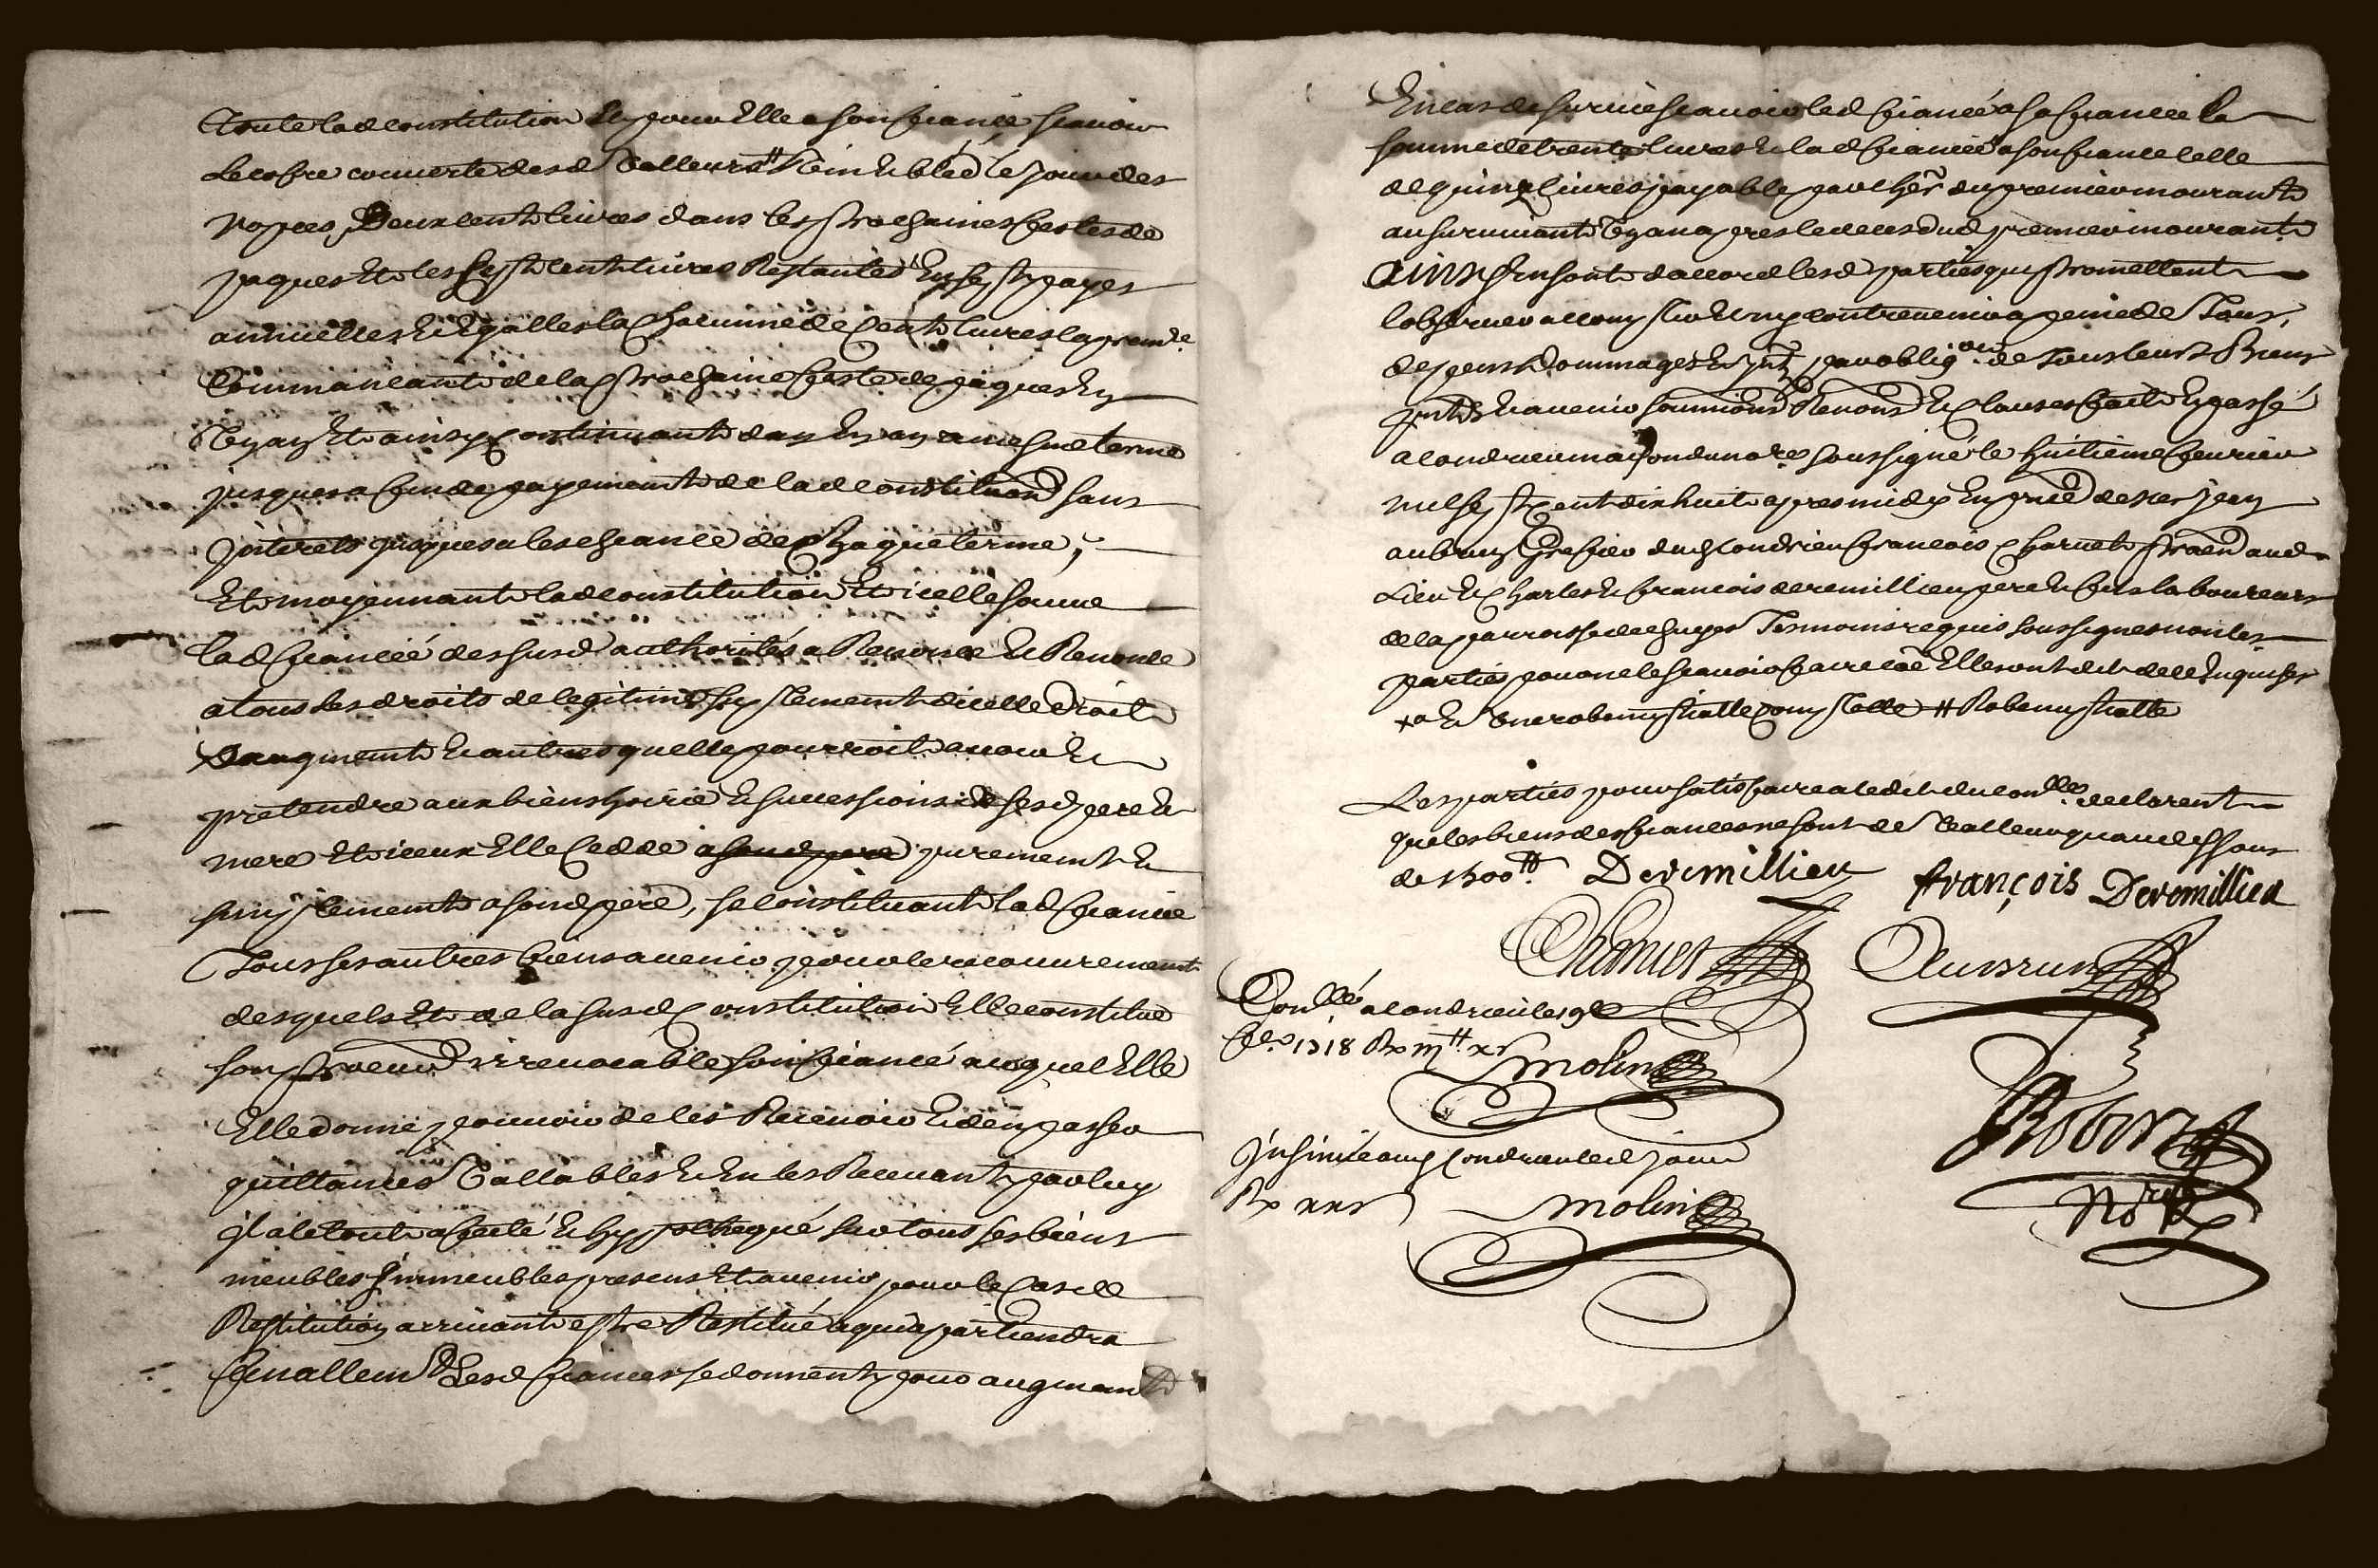 Toute lad constitution par Elle a son fiancé scauoir
Le cofre couuerte desd Valleurs # et Robe le jour des
nopces, Deux cents liures dans les prochaines festes de
paques Et les sept cents liures Restantes En sept payes
annuelles Et Egalles la Chacunne de Cent liures la premre
Commancante de la prochaine feste de paques En
Vn an Et ainsy Continuant dan En an a mesme terme
jusques a fin de payement de lad constituon sans
jnterets jusques a lescheance de Chaque terme,
Et moyennant lad constitution Et icelle somme
lad fiancée dessusd authorisés a Renoncé Et Renonce
a tous les droits de legitime supplement dicelle Droit
Daugment Et autres quelle pourroit auoir Et
pretendre aux biens hoirie Et successions de sesd pere Et
mere Et iceux Elle Cedde a sond pere purement Et
simplement a sond pere, se constituant lad fiancée
Tous ses autres biens auenir pour le recouurement
desquels Et de la susd Constitution Elle constitue
son procur irreuocable son fiancé auquel Elle
Elle donne pouuoir de les Receuoir Et den passer
quittances Vallables Et En les Receuant par luy
jl a le tout afecté Et hyppothequé sur tous ses biens
meubles jmmeubles presens Et auenir pour le Cas de
Restitution arriuant estre Restitué a qui apartiendra
finallemt Lesd fiancés se donnent pour augment
En cas de suruie scauoir led fiancé a sa fiancée la
somme de trente liures Et lad fiancée a son fiancé celle
de quinze liures payable par lher du premier mourant
au suruiuant Vn an apres le deces dud premier mourant
Ainsy En sont daccord lesd parties qui promettent
lobseruer accomplir Et ny contreuenir a peine de Tous
depens Dommages Et jnts par obligon de Tous leurs Biens
pnts Et auenir soumions Renons Et Clauses fait Et passé
a condrieu maison du nore soussigné le huitieme feurier
mil sept Cent dix huit apres midy En pnce de sier jean
aubrun Grefier dud Condrieu francois Charuet praen aud
Lieu Et Charles Et francois deremillieu pere Et fils laboureurs
de la parroisse de Tesmoins requis soussignes non les
parties pour ne le scauoir faire coe Elles ont dit de ce Enquises
+a Et Vne robe nuptialle # Robe nuptialle
Les parties pour satisfaire a ledit du conlle declarent
que les biens des fiances ne sont de Valleur quau dessous
de 1500tt. Deremillieu françois Deremillieu
Charuet Aubrun
Conllé a condrieu le 9e
fer 1718 Rx mtt xs Molin
Robin
Nore
Jnsinué aud Condrieu led jour
Rx xxs Molin